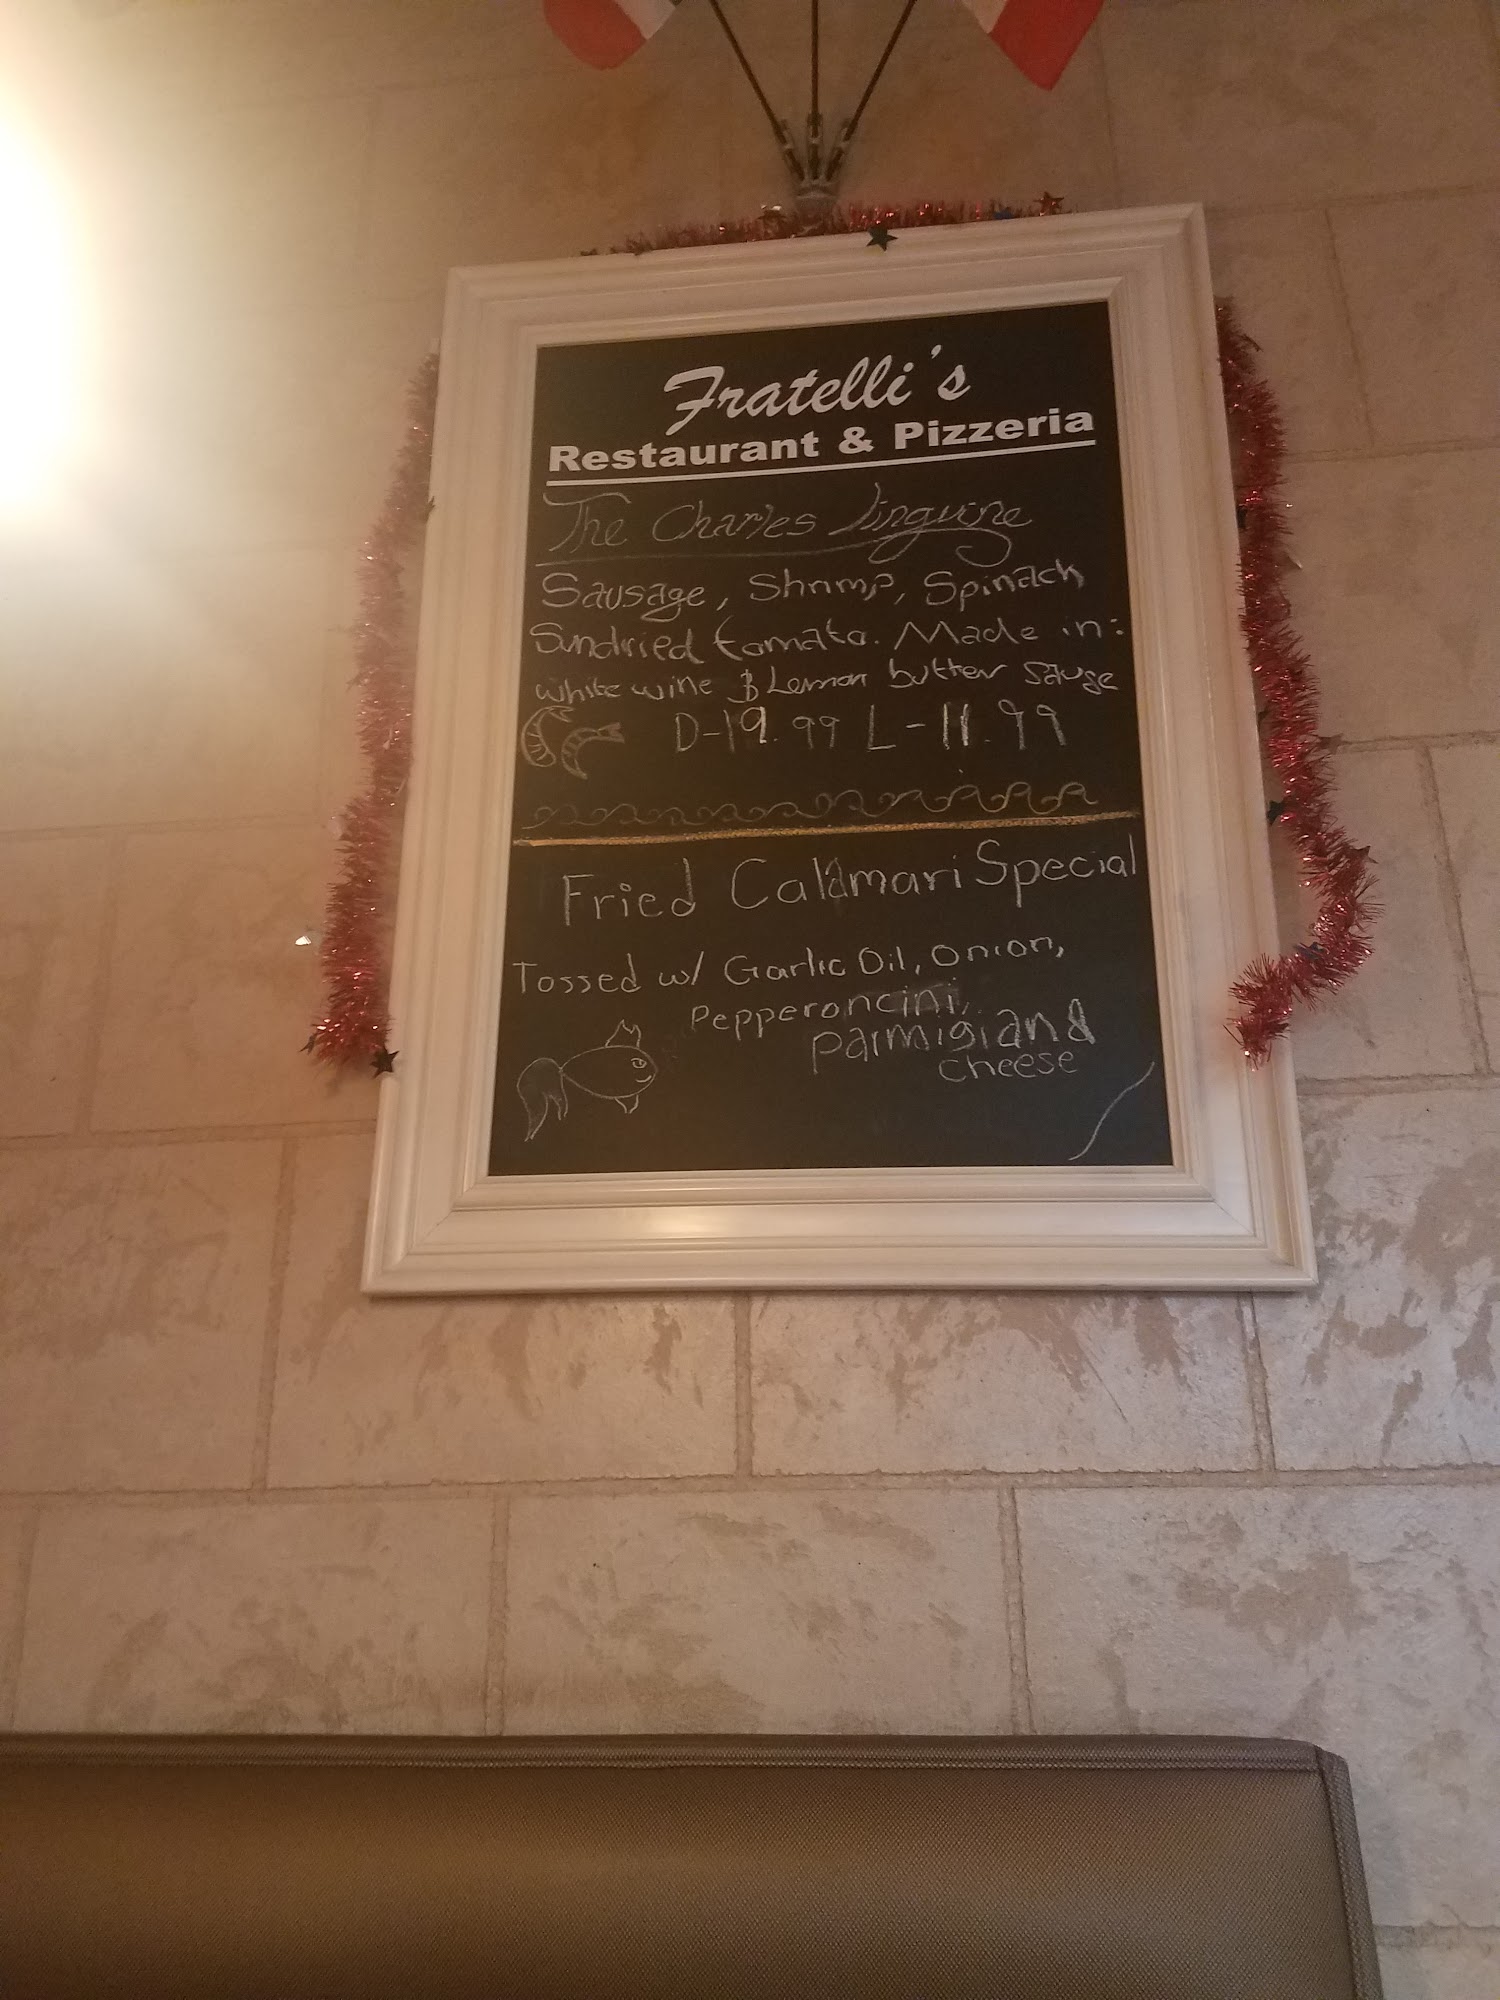 Fratelli's
Restaurant & Pizzeria
The Charles Linguine
Sausage, Shrimp, Spinach
Sundried tomato. Made in:
white wine & Lemon butter sause
D-19.99 L-11.99
Fried Calamari Special
Tossed w/ Garlic Oil, Onion,
Pepperoncini,
Parmigian &
Cheese